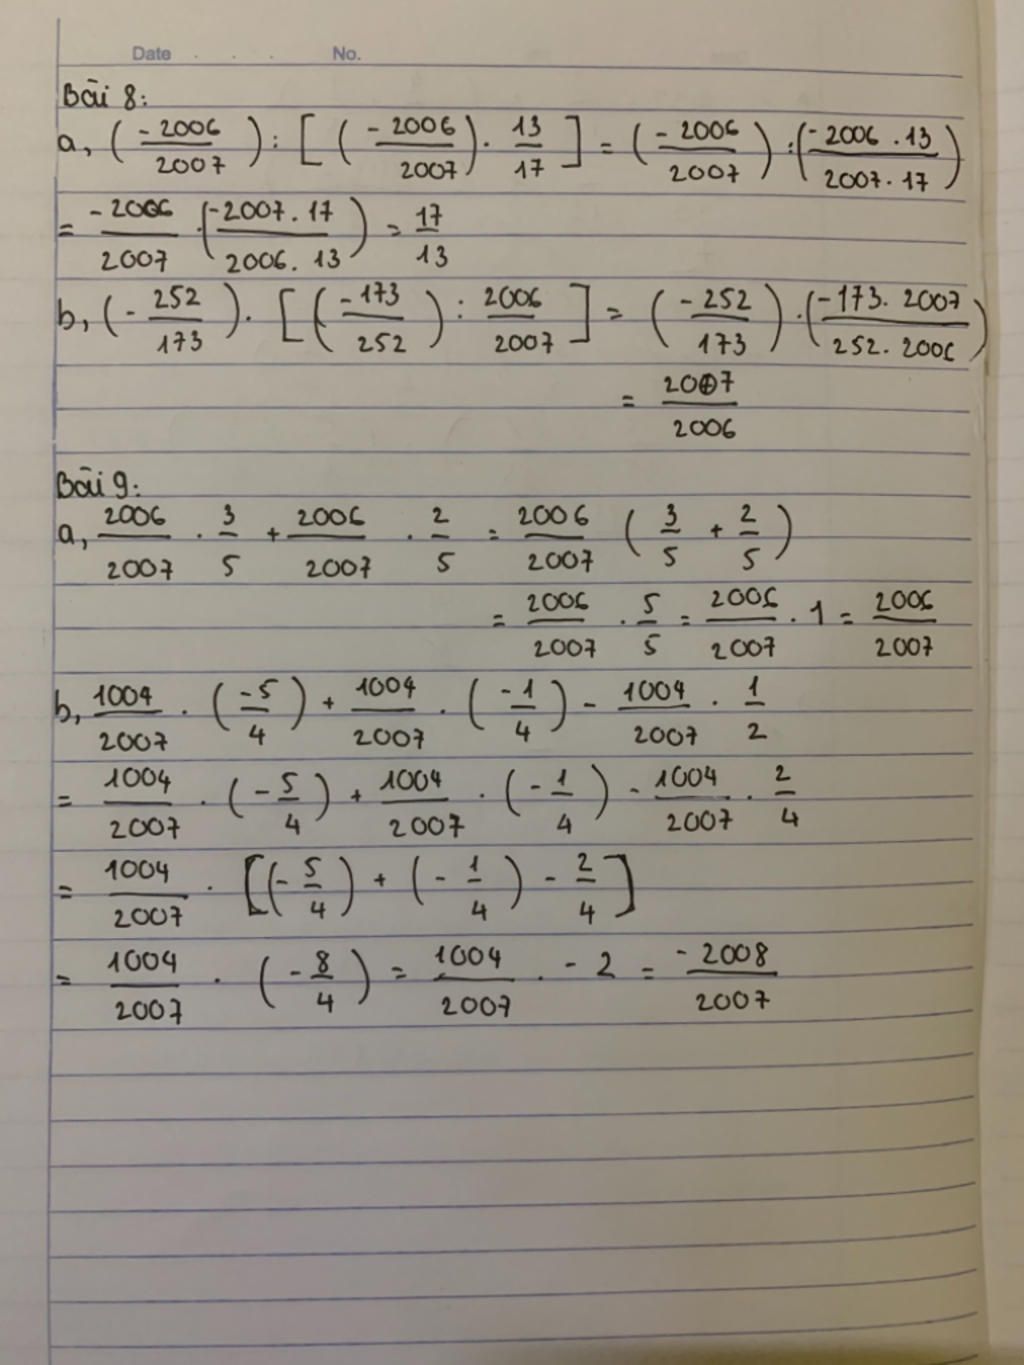 Date . . . No.
Bài 8:
a, (-2006/2007) : [(-2006/2007) . 13/17] = (-2006/2007) : (-2006.13/2007.17)
= -2006/2007 . (-2007.17/2006.13) = 17/13
b, (-252/173) . [(-173/252) : 2006/2007] = (-252/173) . (-173.2007/252.2006)
= 2007/2006
Bài 9:
a, 2006/2007 . 3/5 + 2006/2007 . 2/5 = 2006/2007 (3/5 + 2/5)
= 2006/2007 . 5/5 = 2006/2007 . 1 = 2006/2007
b, 1004/2007 . (-5/4) + 1004/2007 . (-1/4) - 1004/2007 . 1/2
= 1004/2007 . (-5/4) + 1004/2007 . (-1/4) - 1004/2007 . 2/4
= 1004/2007 . [(-5/4) + (-1/4) - 2/4]
= 1004/2007 . (-8/4) = 1004/2007 . -2 = -2008/2007